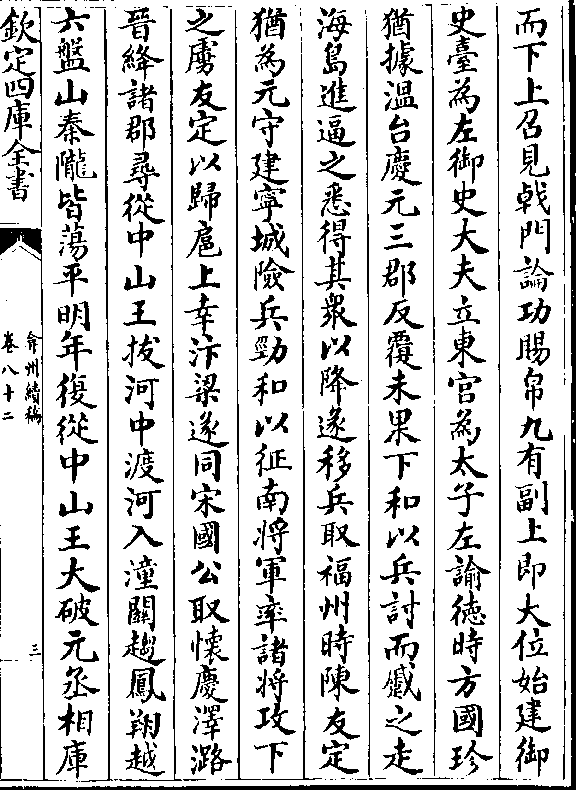 而下上召見戟門論功賜帛九有副上即大位始建御
史臺為左御史大夫立東宮為太子左諭徳時方國珍
猶據温台慶元三郡反覆未果下和以兵討而衊之走
海島進逼之悉得其衆以降遂移兵取福州時陳友定
猶為元守建寧城險兵勁和以征南將軍率諸將攻下
之虜友定以歸扈上幸汴梁遂同宋國公取懷慶澤潞
晉絳諸郡尋從中山王拔河中渡河入潼關趨鳳翔越
六盤山秦隴皆蕩平明年復從中山王大破元丞相庫
欽定四庫全書
弇州續稿
卷八十二
三